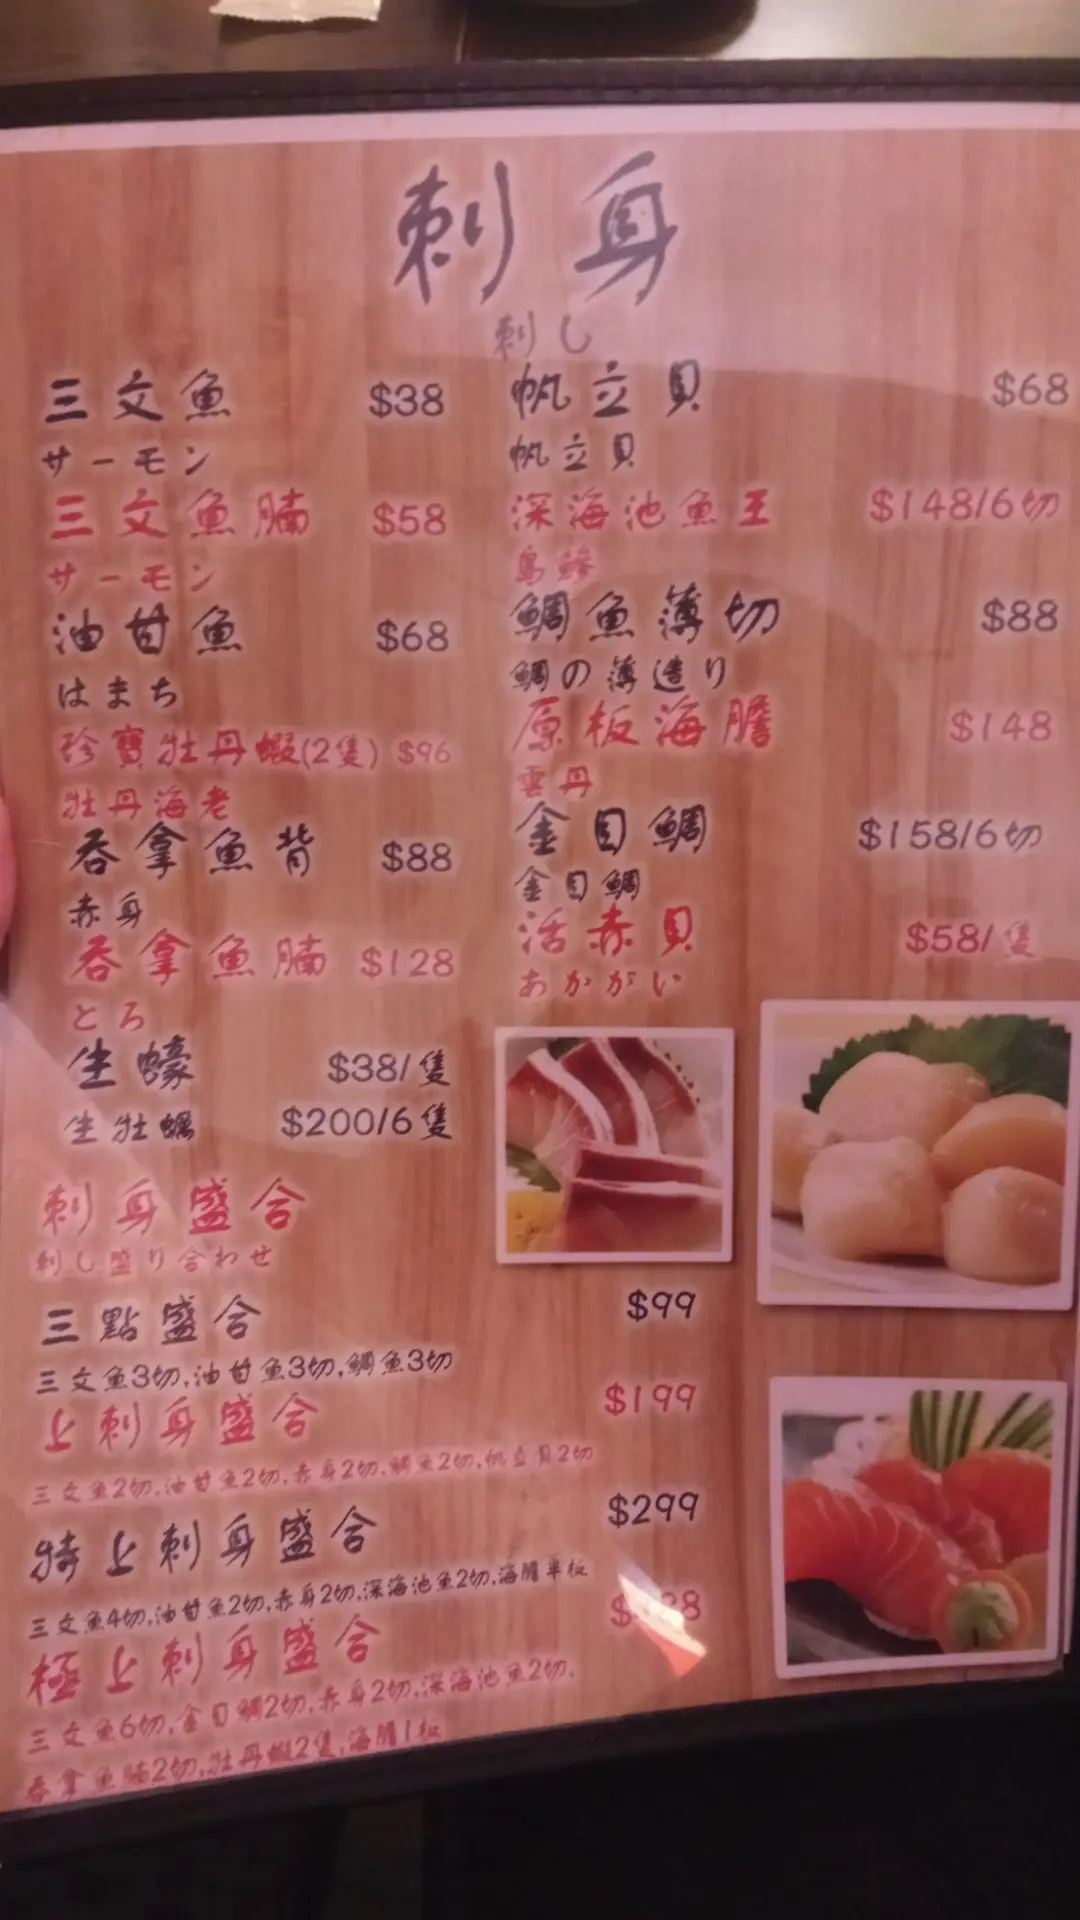 刺身
刺し
三文魚 $38
サーモン
三文魚腩 $58
サーモン
油甘魚 $68
はまち
珍寶牡丹蝦(2隻) $96
牡丹海老
吞拿魚背 $88
赤身
吞拿魚腩 $128
とろ
生蠔 $38/隻
生牡蠣 $200/6隻
帆立貝 $68
帆立貝
深海池魚王 $148/6切
島鯵
鯛魚薄切 $88
鯛の薄造り
原板海膽 $148
雲丹
金目鯛 $158/6切
金目鯛
活赤貝 $58/隻
あかがい
刺身盛合
刺し盛り合わせ
三點盛合 $99
三文魚3切,油甘魚3切,鯛魚3切
上刺身盛合 $199
三文魚2切,油甘魚2切,赤身2切,鯛魚2切,帆立貝2切
特上刺身盛合 $299
三文魚4切,油甘魚2切,赤身2切,深海池魚2切,海膽半板
極上刺身盛合
三文魚6切,金目鯛2切,赤身2切,深海池魚2切,
吞拿魚腩2切,牡丹蝦2隻,海膽1板